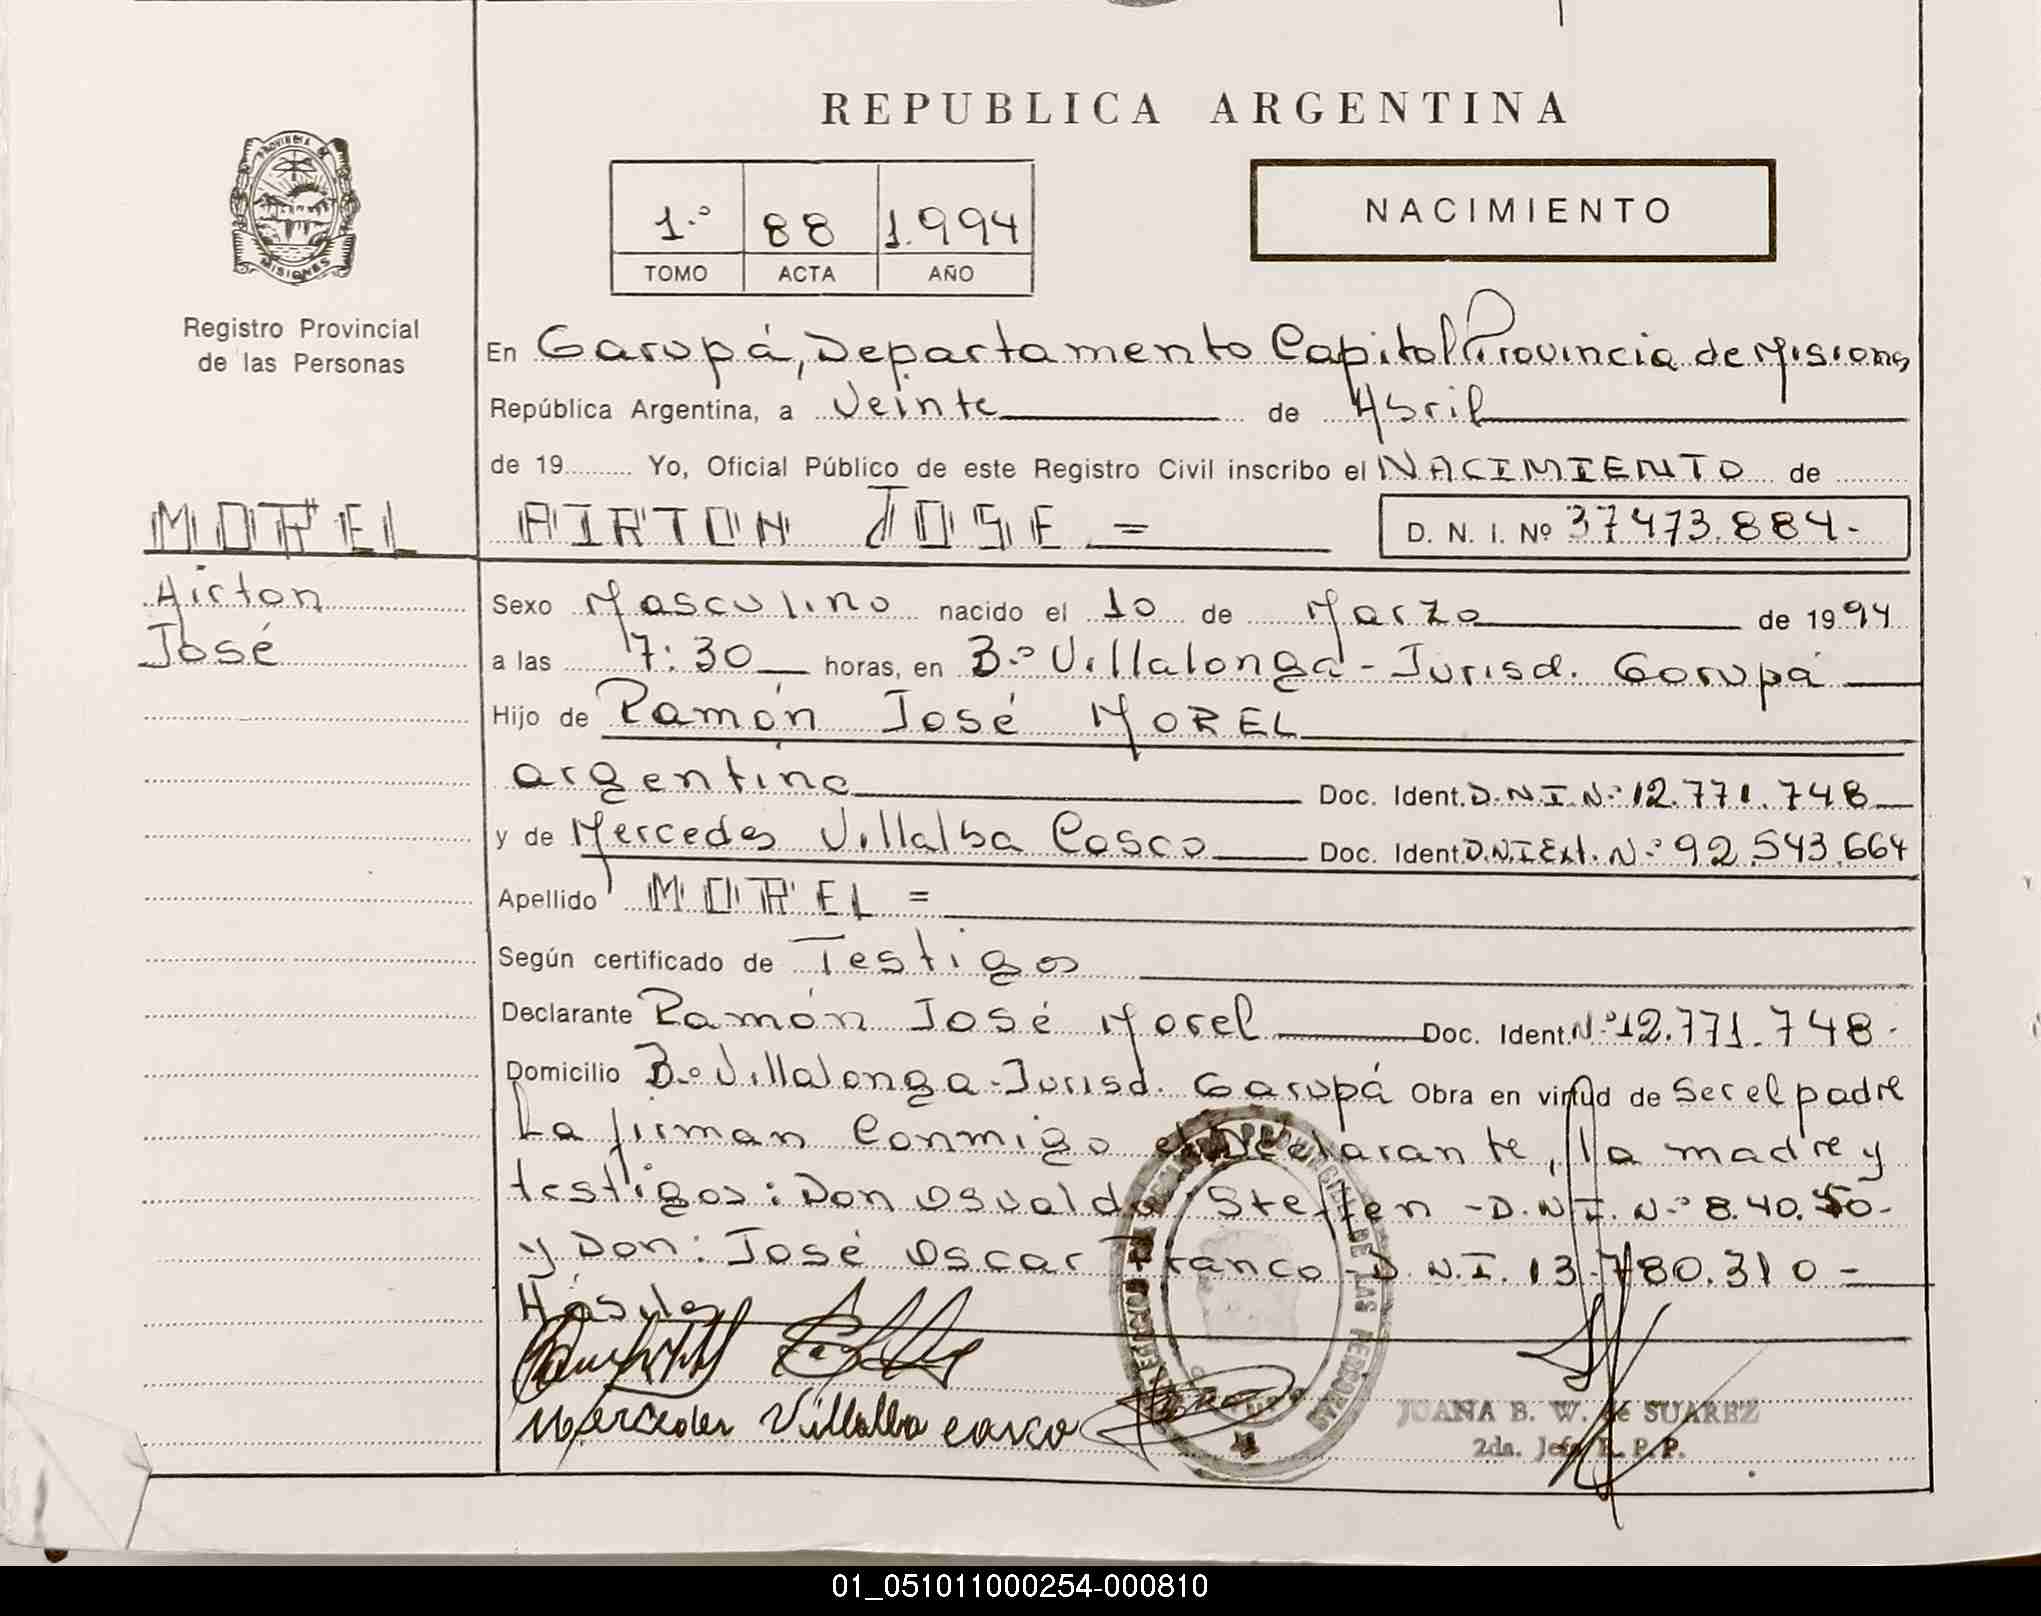 REPUBLICA ARGENTINA
PROVINCIA DE
MISIONES
Registro Provincial
de las Personas
1.º 88 1.994
TOMO ACTA AÑO
NACIMIENTO
En Garupá, Departamento Capital Provincia de Misiones
República Argentina, a Veinte de Abril
de 19 Yo, Oficial Público de este Registro Civil inscribo el NACIMIENTO de
MOREL
AIRTON JOSE =
D. N. I. Nº 37473.884-
Airton
José
Sexo Masculino nacido el 10 de Marzo de 1994
a las 7:30 horas, en B.º Villalonga - Jurisd. Garupá
Hijo de Ramón José MOREL
argentino Doc. Ident. D.N.I.N.º 12.771.748
y de Mercedes Villalba Cosco Doc. Ident D.N.I Ext. N.º 92.543.664
Apellido MOREL =
Según certificado de Testigos
Declarante Ramón José Morel Doc. Ident. N.º 12.771.748.
Domicilio B.º Villalonga - Jurisd. Garupá Obra en virtud de Ser el padre
La firman Conmigo el Declarante, la madre y
testigos: Don Osvaldo Steffen - D.N.I. N.º 8.40.
y Don: José Oscar Franco - D.N.I. 13.780.310 -
Mercedes Villalba Casco
DE LAS PERSONAS
JUANA B. W. de SUAREZ
2da. Jefa R. P. P.
01_051011000254-000810